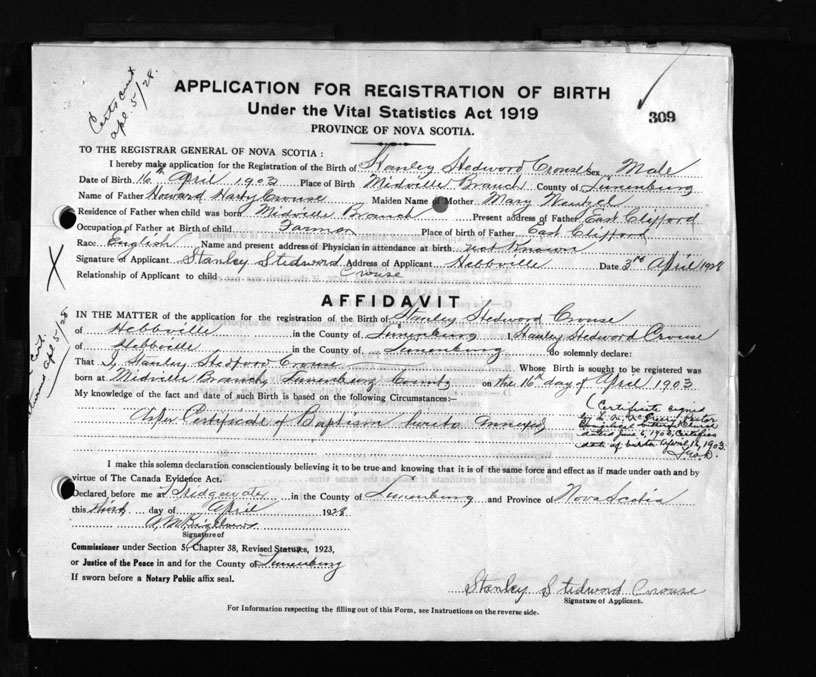 Certs cert
apl. 5/28.
APPLICATION FOR REGISTRATION OF BIRTH
Under the Vital Statistics Act 1919
PROVINCE OF NOVA SCOTIA.
309
TO THE REGISTRAR GENERAL OF NOVA SCOTIA :
I hereby make application for the Registration of the Birth of Stanley Stedword Crouse Sex Male
Date of Birth 16th April 1903 Place of Birth Midville Branch County of Lunenburg
Name of Father Howard Harry Crouse Maiden Name of Mother Mary Wentzel
Residence of Father when child was born Midville Branch Present address of Father East Clifford
Occupation of Father at Birth of child Farmer Place of birth of Father East Clifford
Race English Name and present address of Physician in attendance at birth not Known
Signature of Applicant Stanley Stedword Crouse Address of Applicant Hebbville Date 3rd April 1928
Relationship of Applicant to child
AFFIDAVIT
IN THE MATTER of the application for the registration of the Birth of Stanley Stedword Crouse
of Hebbville in the County of Lunenburg I Stanley Stedword Crouse
of Hebbville in the County of Lunenburg do solemnly declare:
That I, Stanley Stedford Crouse Whose Birth is sought to be registered was
born at Midville Branch, Lunenburg County on the 16th day of April 1903
My knowledge of the fact and date of such Birth is based on the following Circumstances:—
As per Certificate of Baptism hereto annexed,
(Certificate signed
by Pastor
Evangelical Lutheran Church
dated June 6, 1903, Certifies
date of birth April 16, 1903.
I make this solemn declaration conscientiously believing it to be true and knowing that it is of the same force and effect as if made under oath and by
virtue of The Canada Evidence Act.
Declared before me at Bridgewater in the County of Lunenburg and Province of Nova Scotia
this third day of April 1928
Signature of
Commissioner under Section 5, Chapter 38, Revised Statutes, 1923,
or Justice of the Peace in and for the County of Lunenburg
If sworn before a Notary Public affix seal.
Stanley Stedword Crouse
Signature of Applicant.
For Information respecting the filling out of this Form, see Instructions on the reverse side.